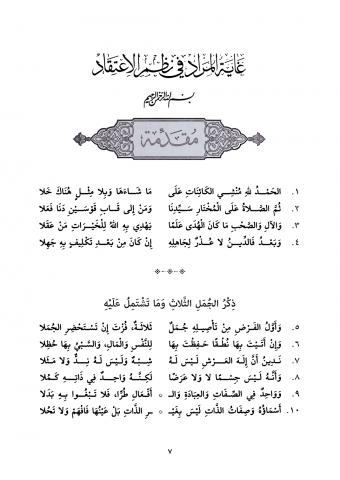 غاية المراد في نظم الاعتقاد
بسم الله الرحمن الرحيم
مقدمة
١. الحَمْدُ للهِ مُنْشِي الكَائِنَاتِ عَلَى مَا شَاءَهَا وَبِلا مِثْلٍ هُنَاكَ خَلا
٢. ثُمَّ الصَّلاةُ عَلَى المُخْتَارِ سَيِّدِنَا وَمَنْ إِلى قَابِ قَوْسَيْنِ دَنَا فَعَلا
٣. وَالآلِ وَالصَّحْبِ مَا كَانَ الهُدَى عَلَمًا يَهْدِي بِهِ اللهُ لِلْخَيْرَاتِ مَنْ عَقَلا
٤. وَبَعْدُ فَالدِّينُ لا عُذْرٌ لِجَاهِلِهِ إِنْ كَانَ مِنْ بَعْدِ تَكْلِيفٍ بِهِ جَهِلا
ذِكْرُ الجُمَلِ الثَّلاثِ وَمَا تَشْتَمِلُ عَلَيْهِ
٥. وَأَوَّلُ الفَرْضِ مِنْ تَأْصِيلِهِ جُمَلٌ ثَلاثَةٌ، فُزْتَ إِنْ تَسْتَحْضِرِ الجُمَلا
٦. وَإِنْ أَتَيْتَ بِهَا نُطْقًا حَفِظْتَ بِهَا لِلنَّفْسِ وَالمَالِ، وَالسَّبْيُ بِهَا حُظِلا
٧. نَدِينُ أَنَّ إِلَهَ العَرْشِ لَيْسَ لَهُ شِبْهٌ وَلَيْسَ لَهُ نِدٌّ وَلا مَثَلا
٨. وَأَنَّهُ لَيْسَ جِسْمًا لا وَلا عَرَضًا لَكِنَّهُ وَاحِدٌ فِي ذَاتِهِ كَمُلا
٩. وَوَاحِدٌ فِي الصِّفَاتِ وَالعِبَادَةِ وَالـ ـأَفْعَالِ طُرًّا، فَلا تَبْغُوا بِهِ بَدَلا
١٠. أَسْمَاؤُهُ وَصِفَاتُ الذَّاتِ لَيْسَ بِغَيْـ ـرِ الذَّاتِ بَلْ عَيْنُهَا فَافْهَمْ وَلا تَحُلا
٧